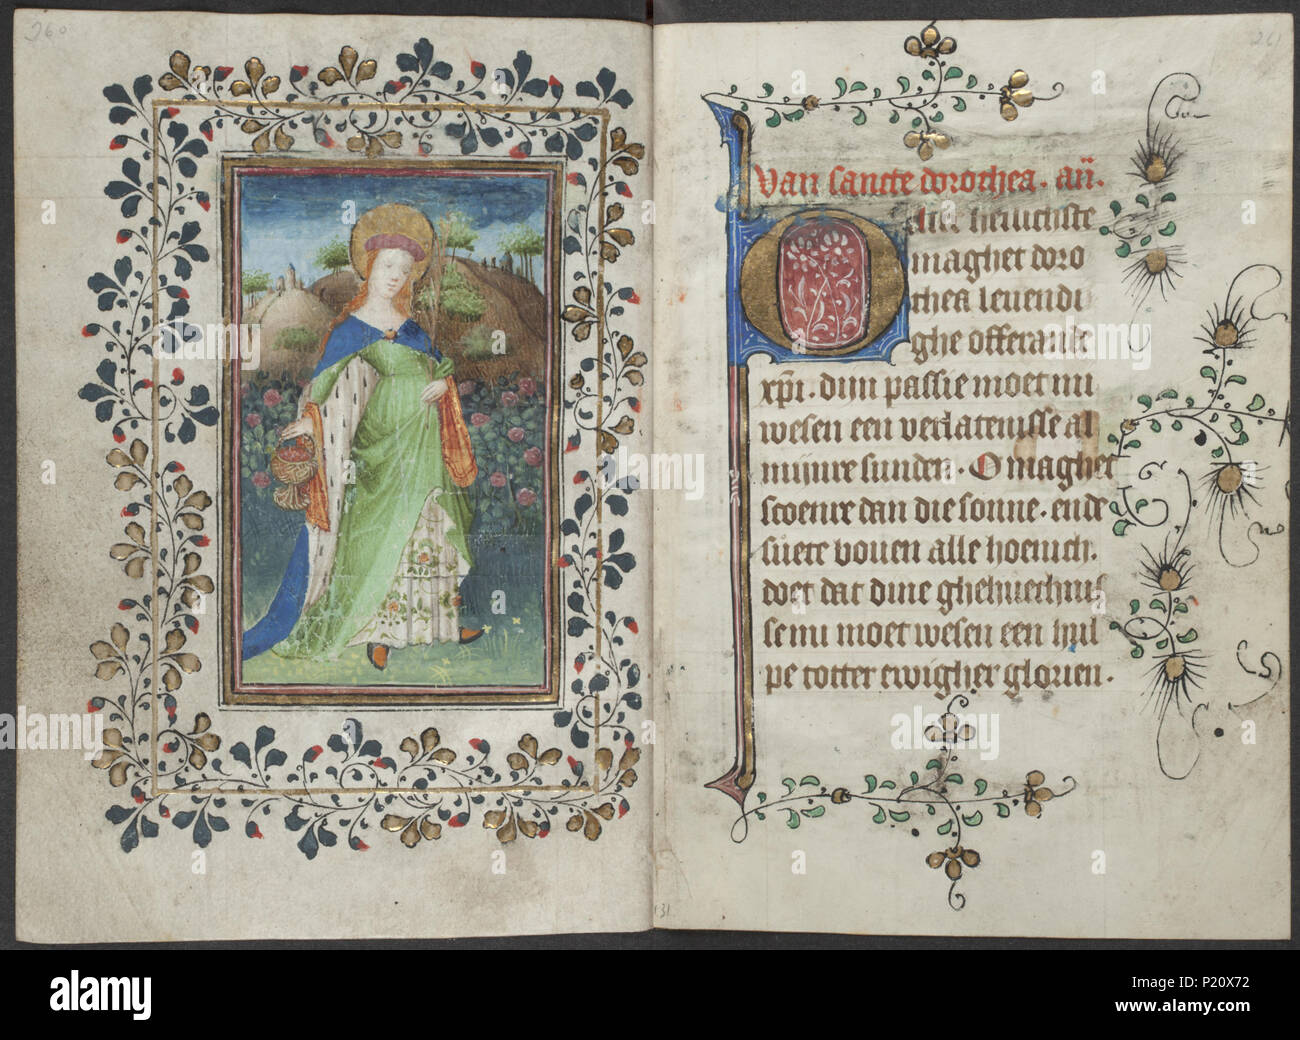 260
261
Van sancte dorothea. añ.
heilichste
maghet doro
thea levendi
ghe offerande
xpi. dijn passie moet mi
wesen een verlatenisse al
mijnre sunden. O maghet
scoenre dan die sonne. ende
suete boven alle hoenich.
doet dat dine ghehuechnis
se mi moet wesen een hul
pe totter ewigher glorien.
131
alamy
Image ID: P20X72
www.alamy.com